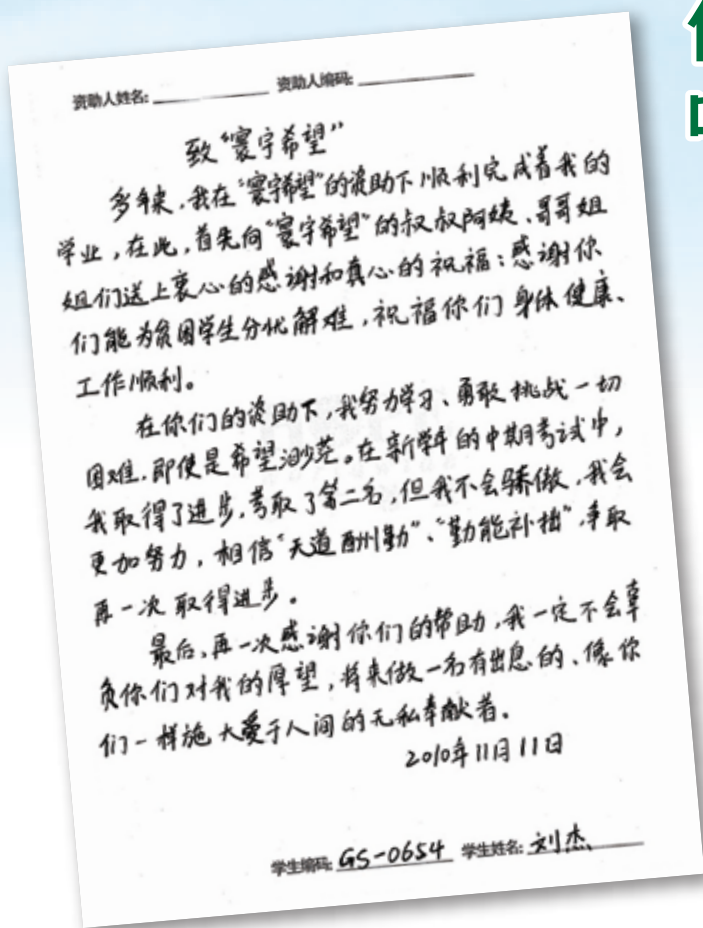 资助人姓名: 资助人编码:
致“寰宇希望”
多年来,我在“寰宇希望”的资助下顺利完成着我的
学业,在此,首先向“寰宇希望”的叔叔阿姨、哥哥姐
姐们送上衷心的感谢和真心的祝福:感谢你
们能为贫困学生分忧解难,祝福你们身体健康、
工作顺利。
在你们的资助下,我努力学习、勇敢挑战一切
困难,即使是希望渺茫。在新学年的中期考试中,
我取得了进步,考取了第二名,但我不会骄傲,我会
更加努力,相信“天道酬勤”、“勤能补拙”,争取
再一次取得进步。
最后,再一次感谢你们的帮助,我一定不会辜
负你们对我的厚望,将来做一名有出息的、像你
们一样施大爱于人间的无私奉献者。
2010年11月11日
学生编码: GS-0654 学生姓名: 刘杰